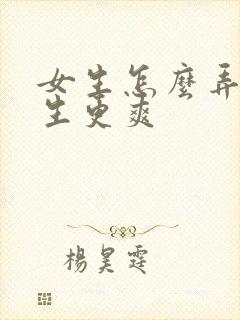 女生怎麼弄
生更爽
楊昊霆